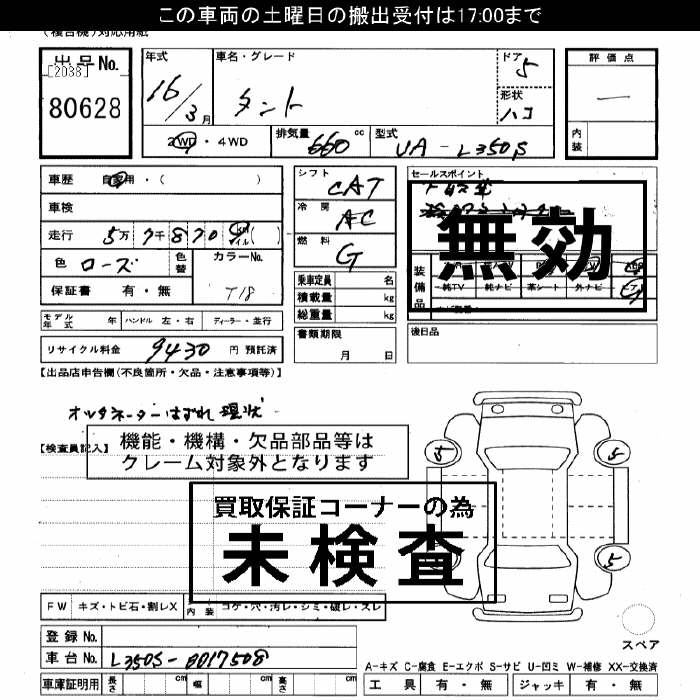 この車両の土曜日の搬出受付は17:00まで
(複合機)対応用紙
出品No.
[2038]
80628
年式
16/3月
車名・グレード
タント
ドア
5
形状
ハコ
2WD・4WD
排気量 660 cc
型式 UA-L350S
評価点
—
内装
車歴 自家用・( )
車検
走行 5万7千8709 km マイル( )
色 ローズ
色替
カラーNo.
T18
保証書 有・無
モデル年式 年
ハンドル 左・右
ディーラー・並行
リサイクル料金 9430 円 預託済
シフト
CAT
冷房
AC
燃料
G
乗車定員 名
積載量 kg
総重量 kg
書類期限
月 日
セールスポイント
無効
装備品
純TV 純ナビ 革シート 外ナビ
後日品
【出品店申告欄(不良箇所・欠品・注意事項等)】
オルタネーターはずれ 現状
【検査員記入】
機能・機構・欠品部品等は
クレーム対象外となります
買取保証コーナーの為
未検査
5
5
5
FW キズ・トビ石・割レX
内装 コゲ・穴・汚レ・シミ・破レ・スレ
登録No.
車台No. L350S-0017508
スペア
A-キズ C-腐食 E-エクボ S-サビ U-凹ミ W-補修 XX-交換済
車庫証明用 長さ cm 幅 cm 高さ cm
工具 有・無 ジャッキ 有・無